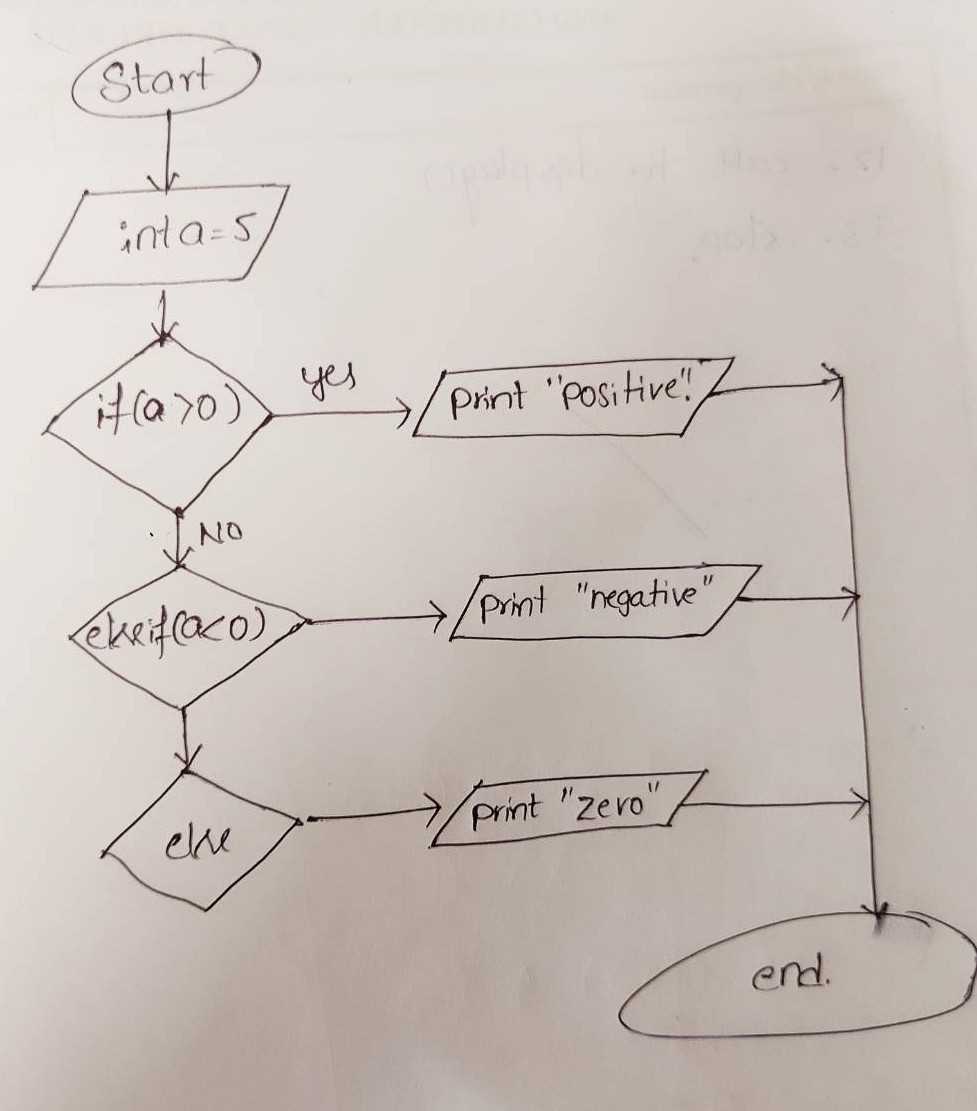 Start
int a=5
if(a>0)
yes
print "positive".
NO
elseif(a<0)
print "negative"
else
print "zero"
end.